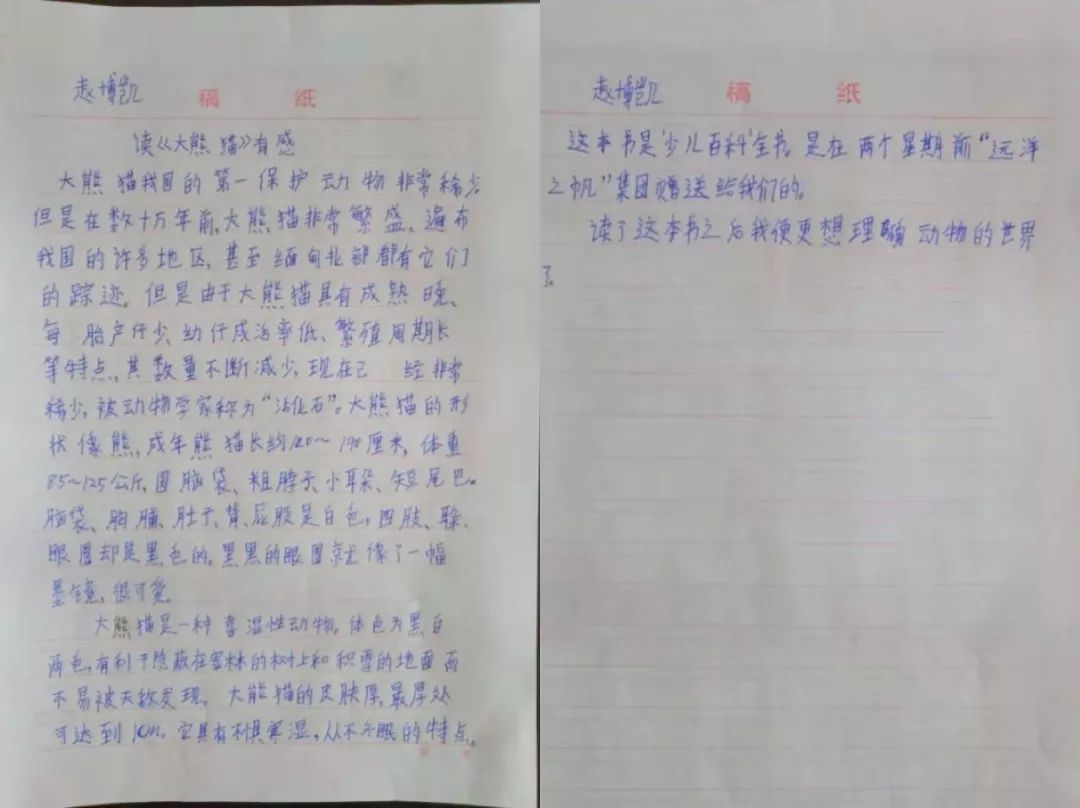 赵博凯 稿 纸
读《大熊猫》有感
大熊猫我国的第一保护动物非常稀少。
但是在数十万年前,大熊猫非常繁盛,遍布
我国的许多地区,甚至缅甸北部都有它们
的踪迹。但是由于大熊猫具有成熟晚、
每 胎产仔少、幼仔成活率低、繁殖周期长
等特点,其数量不断减少,现在已 经非常
稀少,被动物学家称为“活化石”。大熊猫的形
状像熊,成年熊猫长约120~190厘米,体重
85~125公斤,圆脑袋、粗脖子、小耳朵、短尾巴。
脑袋、胸脯、肚子、背、屁股是白色,四肢、
眼圈却是黑色的。黑黑的眼圈就像了一幅
墨镜,很可爱。
大熊猫是一种喜湿性动物。体色为黑白
两色,有利于隐蔽在密林的树上和积雪的地面而
不易被天敌发现。大熊猫的皮肤厚,最厚处
可达到 它具有不惧寒湿,从不冬眠的特点。
赵博凯 稿 纸
这本书是‘少儿百科’全书。是在两个星期前“远洋
之帆”集团赠送给我们的。
读了这本书之后我便更想理 动物的世界
了。